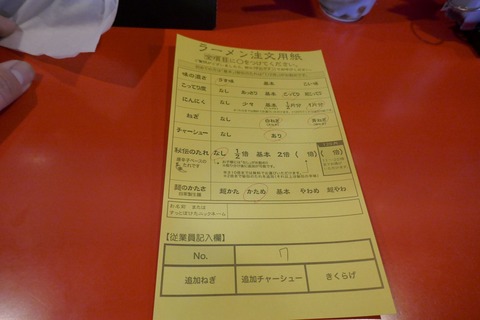 ラーメン注文用紙
全項目に○をつけてください。
味の濃さ うす味 基本 こい味
こってり度 なし あっさり 基本 こってり 超こってり
にんにく なし 少々 基本 1/2片分 1片分
ねぎ なし 白ねぎ 青ねぎ
チャーシュー なし あり
秘伝のたれ なし 1/2倍 基本 2倍 ( 倍)
麺のかたさ 超かた かため 基本 やわめ 超やわ
お名前 または
すっとぼけたニックネーム
【従業員記入欄】
No. 7
追加ねぎ 追加チャーシュー きくらげ